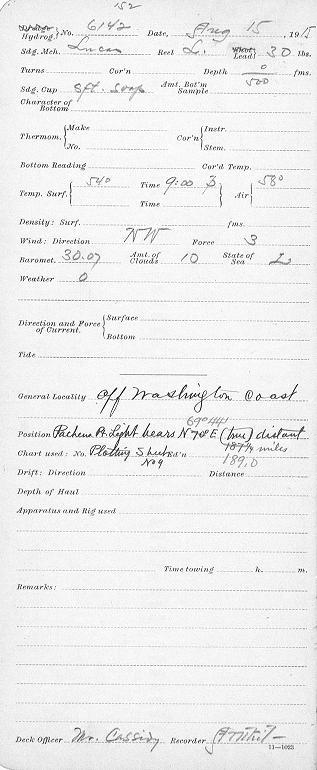 152
Hydrog. No. 6142 Date, Aug 15, 1915
Sdg. Mch. Lucas Reel L. Lead 30 lbs.
Turns Cor'n Depth 0/500 fms.
Sdg. Cup Sft. Soap Amt. Bot'm Sample
Character of Bottom
Thermom. Make Cor'n Instr.
No. Stem.
Bottom Reading Cor'd Temp.
Temp. Surf. 54° Time 9:00 Air 58°
Time
Density: Surf. fms.
Wind: Direction NW Force 3
Baromet. 30.07 Amt. of Clouds 10 State of Sea L
Weather 0
Direction and Force of Current. Surface
Bottom
Tide
General Locality off Washington Coast
69° 44'
Position Pachena Pt. Light bears N 70 E (true) distant
187¼ miles
Chart used: No. Plotting Sheet Ed'n
No 9 189.0
Drift: Direction Distance
Depth of Haul
Apparatus and Rig used
Time towing h. m.
Remarks:
Deck Officer Mr. Cassidy Recorder
11—1023